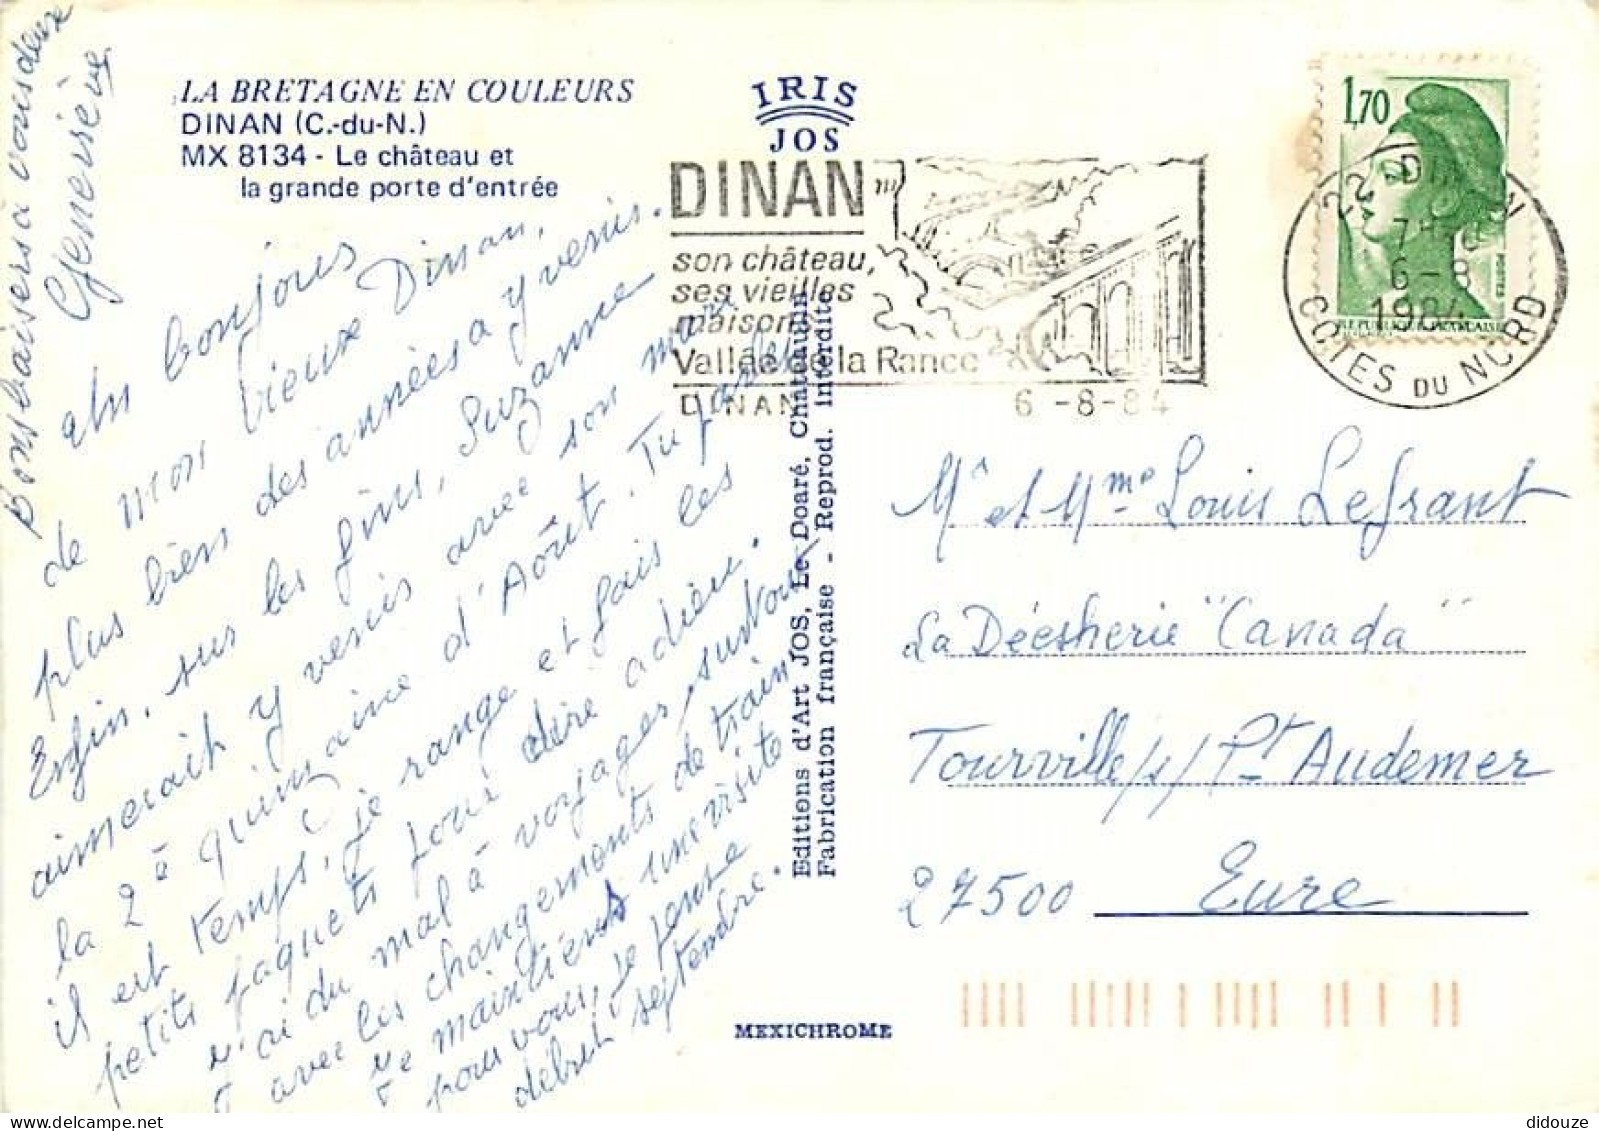 LA BRETAGNE EN COULEURS
DINAN (C.-du-N.)
MX 8134 - Le château et
la grande porte d'entrée
IRIS
JOS
DINAN
son château,
ses vieilles
maisons
Vallée de la Rance
DINAN 6-8-84
1,70
REPUBLIQUE FRANCAISE
POSTES
22 DINAN
7H
6-8
1984
COTES DU NORD
un bonjour
de mon vieux Dinan,
plus bien des années a y venir.
Enfin, sur les fins, Suzanne
aimerait y venir avec son mari
la 2è quinzaine d'Août. Tu parles
il est temps, je range et fais les
petits paquets pour dire adieu.
J'ai du mal à voyager surtout
avec les changements de train
Je maintiens une visite
pour vous, je pense
début septembre.
Bons baisers a vous deux
Geneviève
Editions d'Art JOS, Le Doaré, Chateaulin
Fabrication française - Reprod. interdite
MEXICHROME
Mr et Mme Louis Lefrant
La Déesherie "Canada"
Tourville s/ Pt Audemer
27500 Eure
didouze